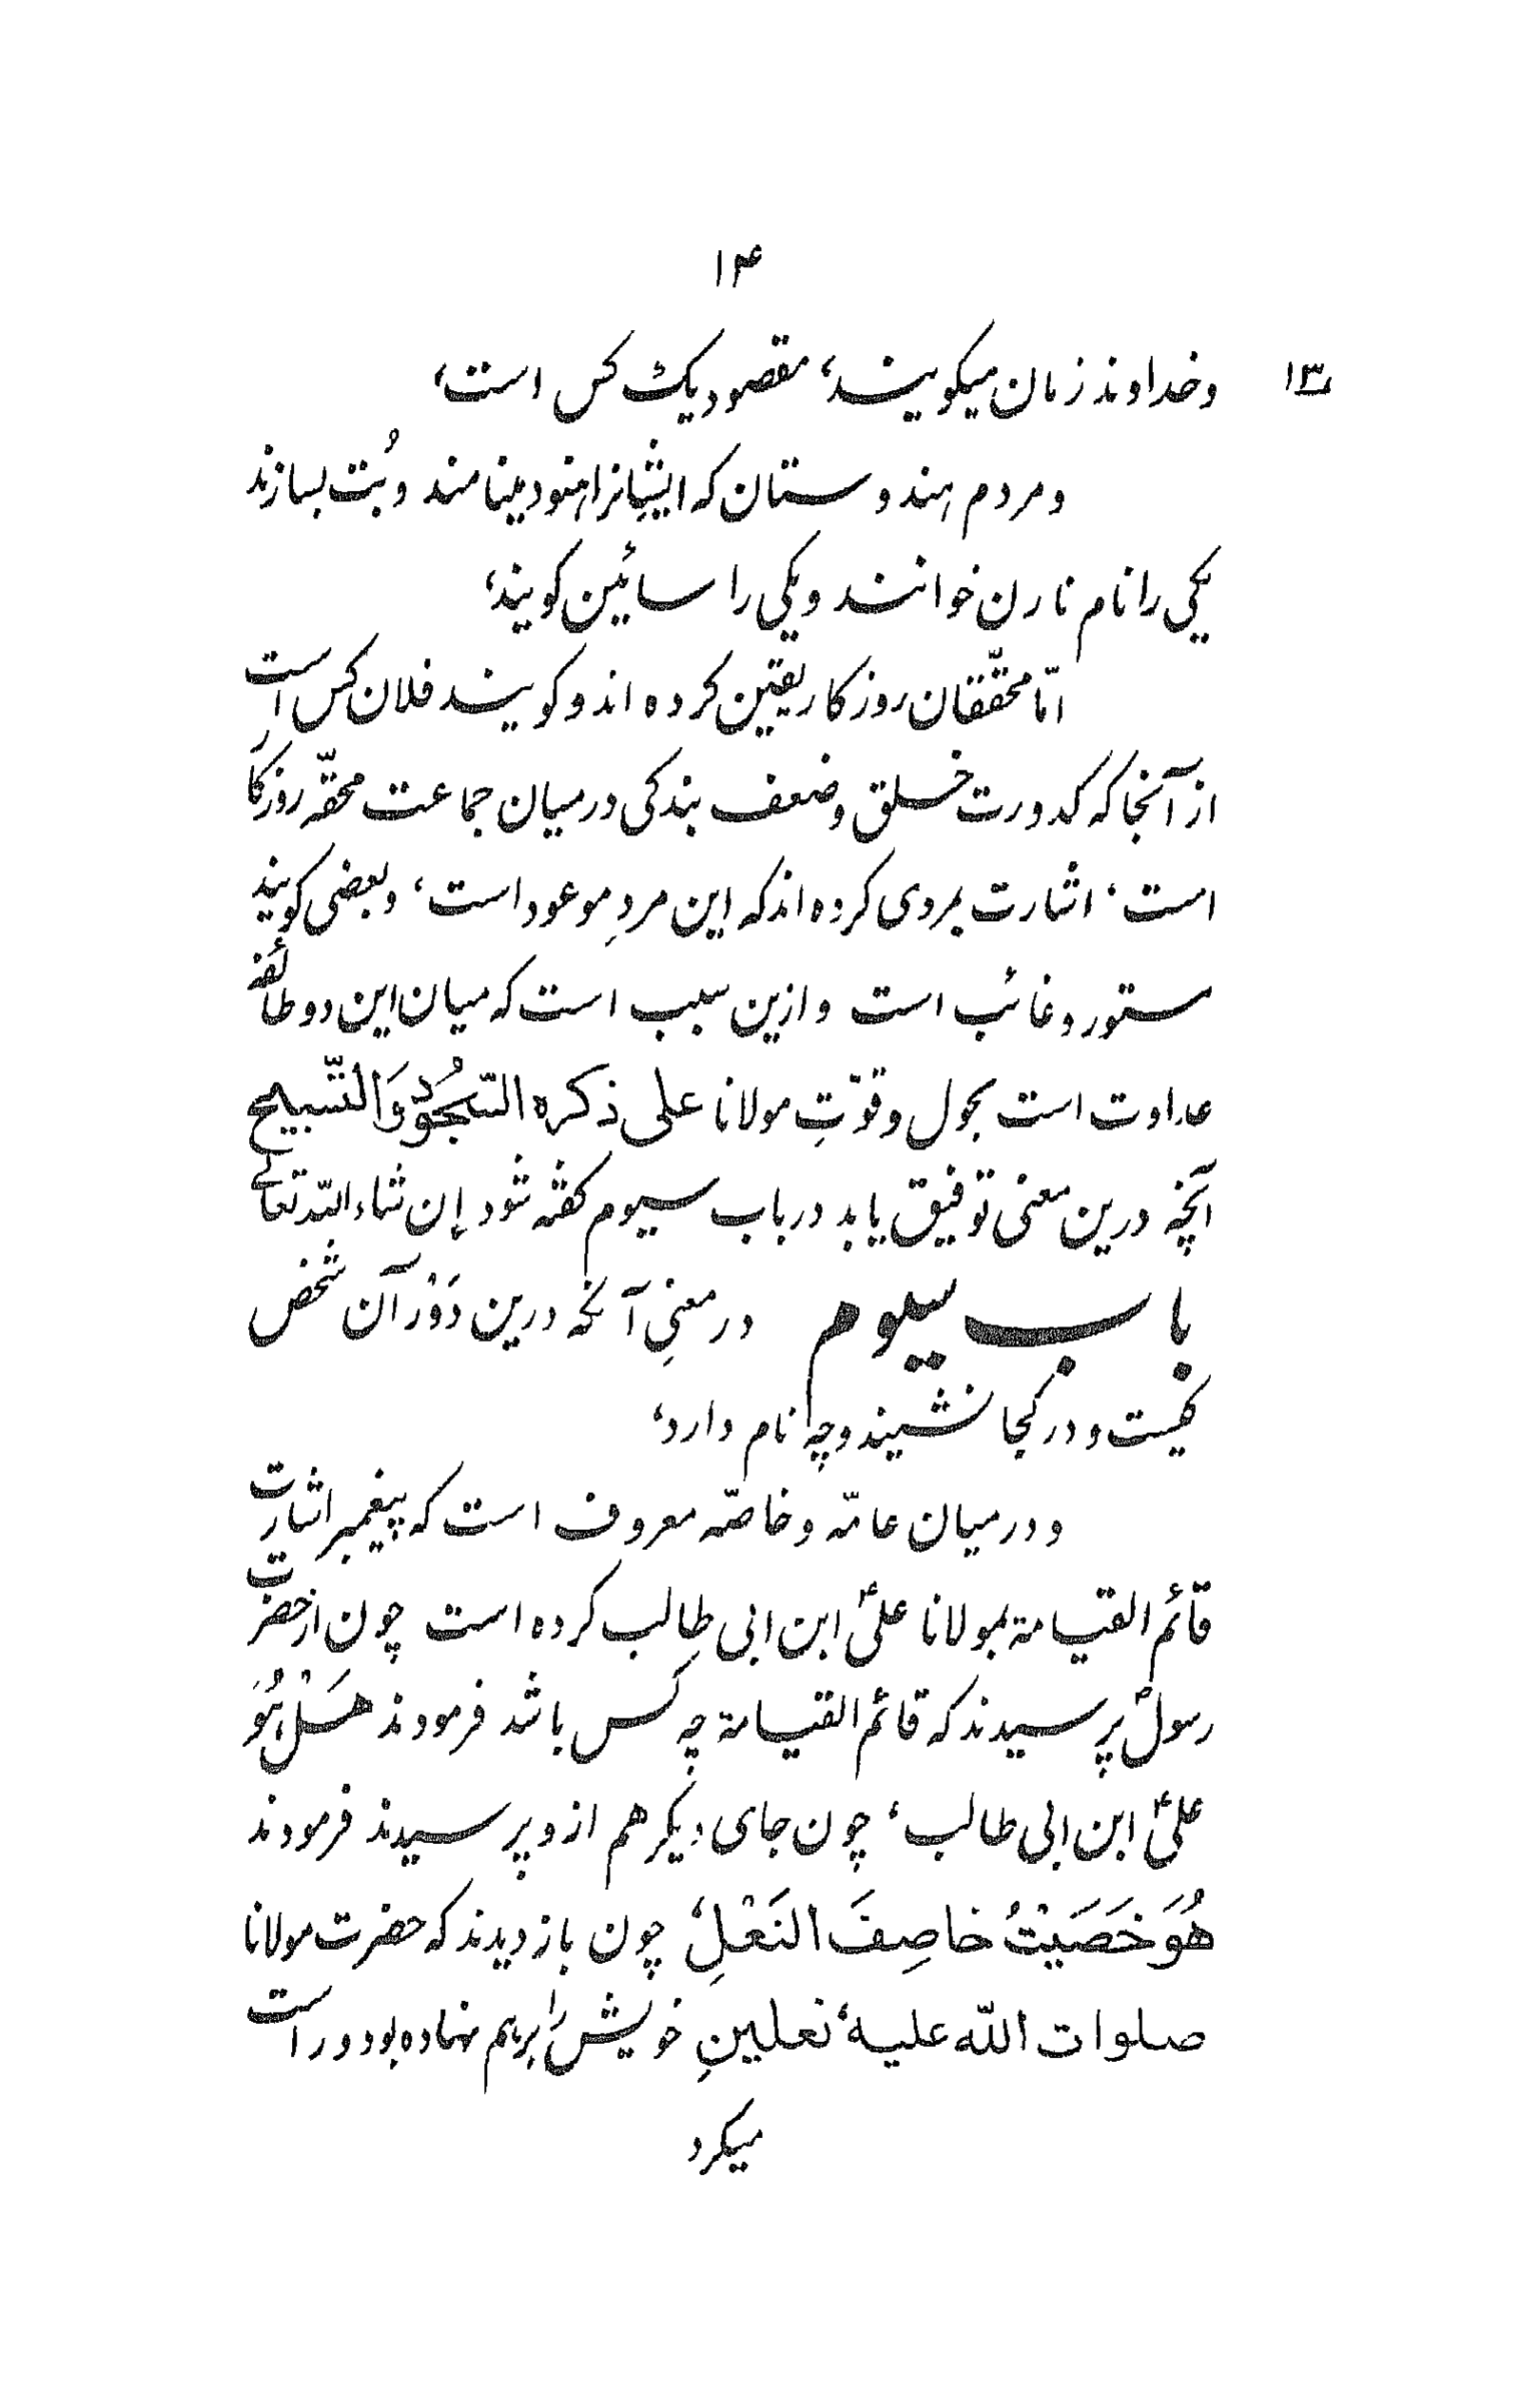 ۱۴
وخداوند زمان میکویند، مقصود یک کس است،
۱۳
ومردم هندوستان که ایشانرا هنود مینامند وبُت بسازند
یکی را نام نارن خوانند ویکی را سائین کویند،
امّا محقّقان روزکار یقین کرده اند وکویند فلان کس است
از آنجا که کدورت خلق وضعف بندکی درمیان جماعت محقّه روزکار
است، اشارت بمردی کرده اند که این مردِ موعود است، وبعضی کویند
مستور وغائب است وازین سبب است که میان این دو طائفه
عداوت است بحول وقوّتِ مولانا علی ذکره السّجُود وَالتّسبیح
آنچه درین معنی توفیق یابد درباب سیوم کفته شود إن شاء اللّه تعالے
باب سیوم در معنیِ آنکه درین دَوْر آن شخص
کیست ودر کجا نشیند وچه نام دارد،
ودرمیان عامّه وخاصّه معروف است که پیغمبر اشارت
قائم القیامة بمولانا علیؑ ابن ابی طالب کرده است چون از حضرت
رسولؐ پرسیدند که قائم القیامة چه کس باشد فرمودند هَلْ هُوَ
علیؑ ابن ابی طالب، چون جای دیکر هم ازو پرسیدند فرمودند
هُوَ خَصَیْتُ خاصِفَ النَعْلِ، چون باز دیدند که حضرت مولانا
صلوات اللّه علیه، نعلینِ خویش را برهم نهاده بود و راست
میکرد